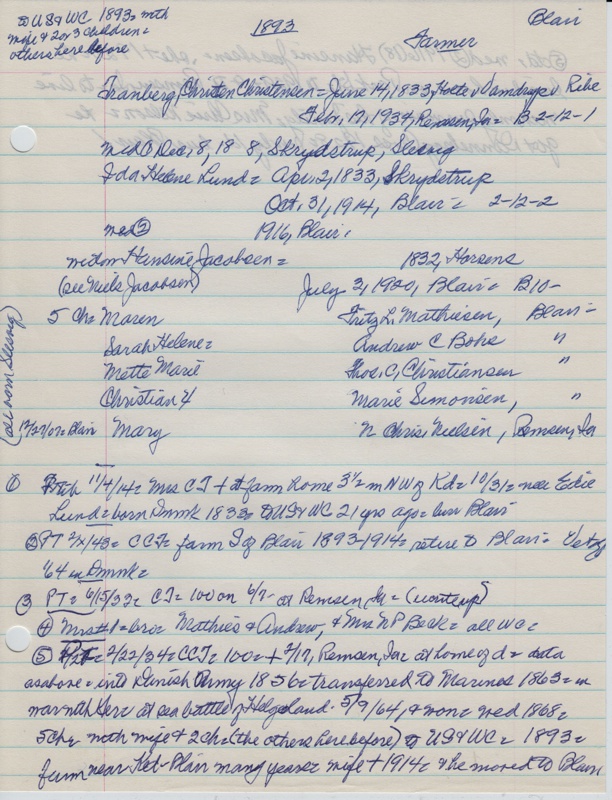 to US & WC 1893 = with
wife & 2 or 3 children =
others here before
1893
Blair
Farmer
Tranberg, Christen Christensen = June 14, 1833, v Ribe
Feb. 17, 1934, Remsen, Ia = B-2-12-1
med ① Dec. 8, 18 8, Skrydstrup, Slesvig
Ida Helene Lund = Apr. 2, 1833, Skrydstrup
Oct. 31, 1914, Blair = 2-12-2
med ② 1916, Blair =
widow Hansine Jacobsen = 1832, Horsens
(see Niels Jacobsen) July 2, 1920, Blair = B10-
5 Ch = Maren Fritz L. Mathiesen, Blair =
Sarah Helene = Andrew C Bohs "
Mette Marie Thos. C, Christiansen "
Christian Marie Simonsen, "
12/27/07 = Blair Mary N Chris Nielsen, Remsen, Ia
(all born Slesvig)
① 11/4/14 = Mrs CT + at farm home 3½ m NW of Kd = 10/31 = nee Edie
Lund = born Dnmk 1833 = to US & WC 21 yrs ago = Blair
② PT CCT = farm S of Blair 1893-1914 = retire to Blair =
'64 in Dnmk =
③ PT = 6/15/33 = CT = 100 on 6/7 - at Remsen, Ia = (writeup)
④ Mrs #1 = bro = Mathies & Andrew, & Mrs NP Beck = all WC =
⑤ 2/22/34 = CCT = 100 = + 2/17, Remsen, Ia = at home of d = data
as above = into Danish Army 1856 = transferred to Marines 1863 = in
war with at sea battle of Helgoland - 5/9/64, & won = wed 1868 =
5 ch = with wife & 2 ch = (the others here before) to US & WC = 1893 =
farm near Blair many years = wife + 1914 = & he moved to Blair